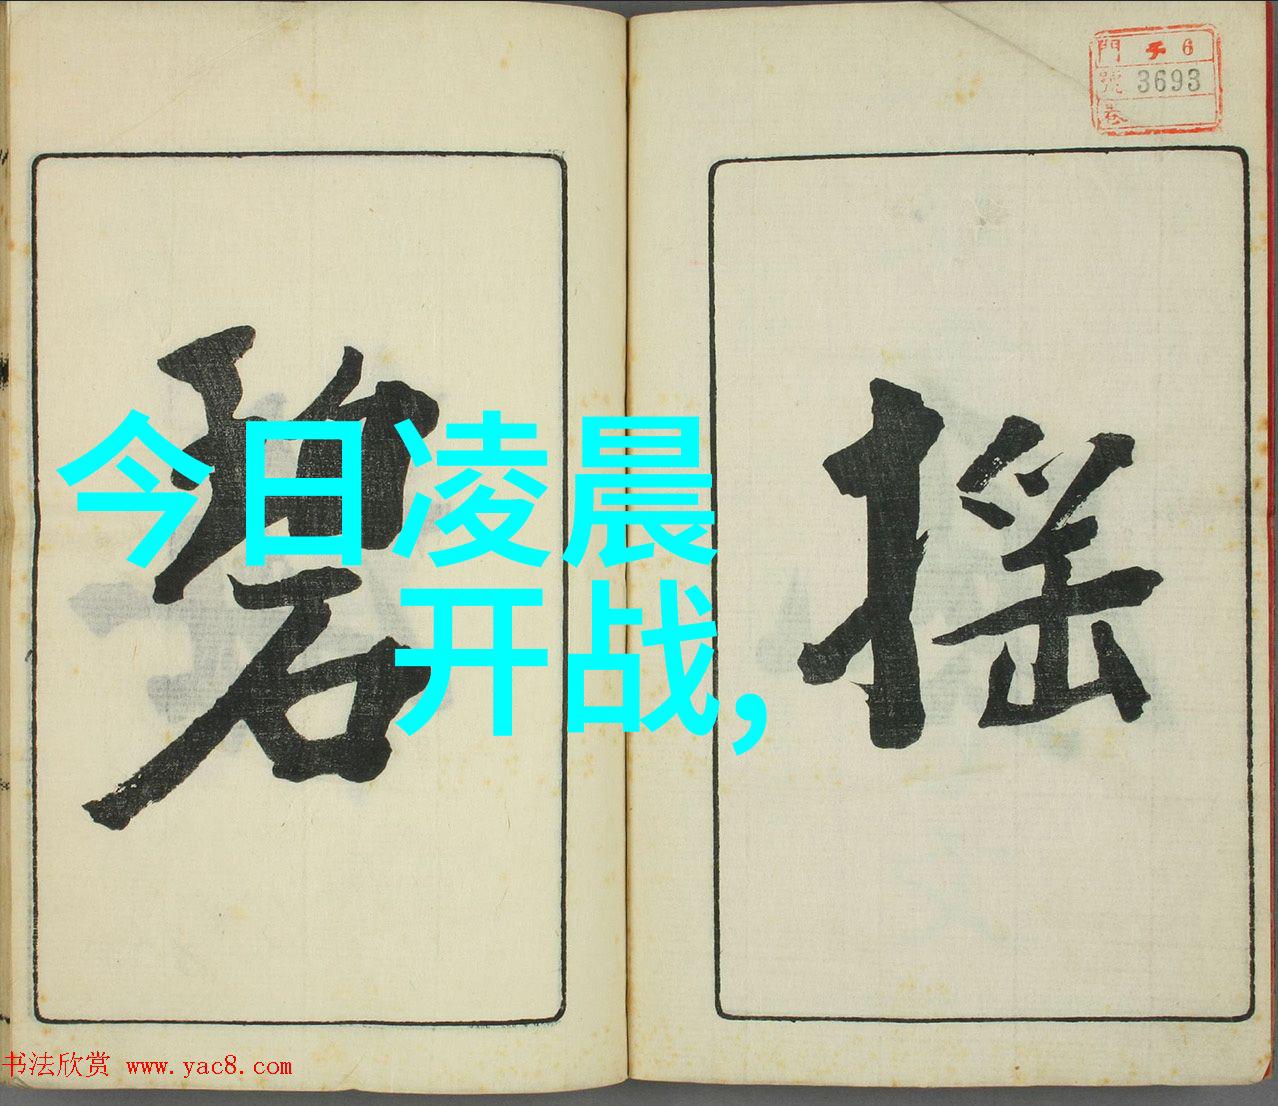 門 チ 6
號 3693
巻
搖
碧
今日凌晨
开战，
书法欣赏 www.yac8.com